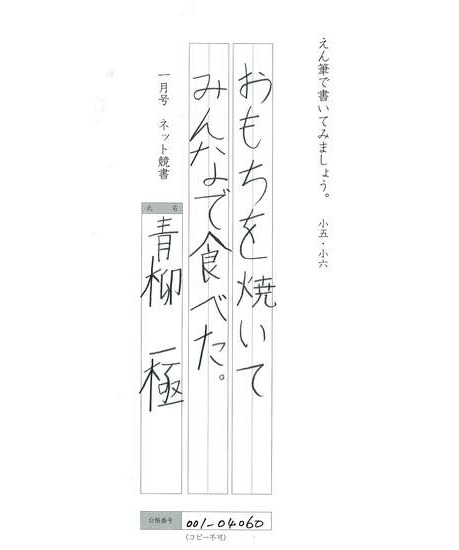 えん筆で書いてみましょう。 小五・小六
おもちを焼いて
みんなで食べた。
一月号 ネット競書
氏名
青柳 一極
台帳番号 001-04060
(コピー不可)